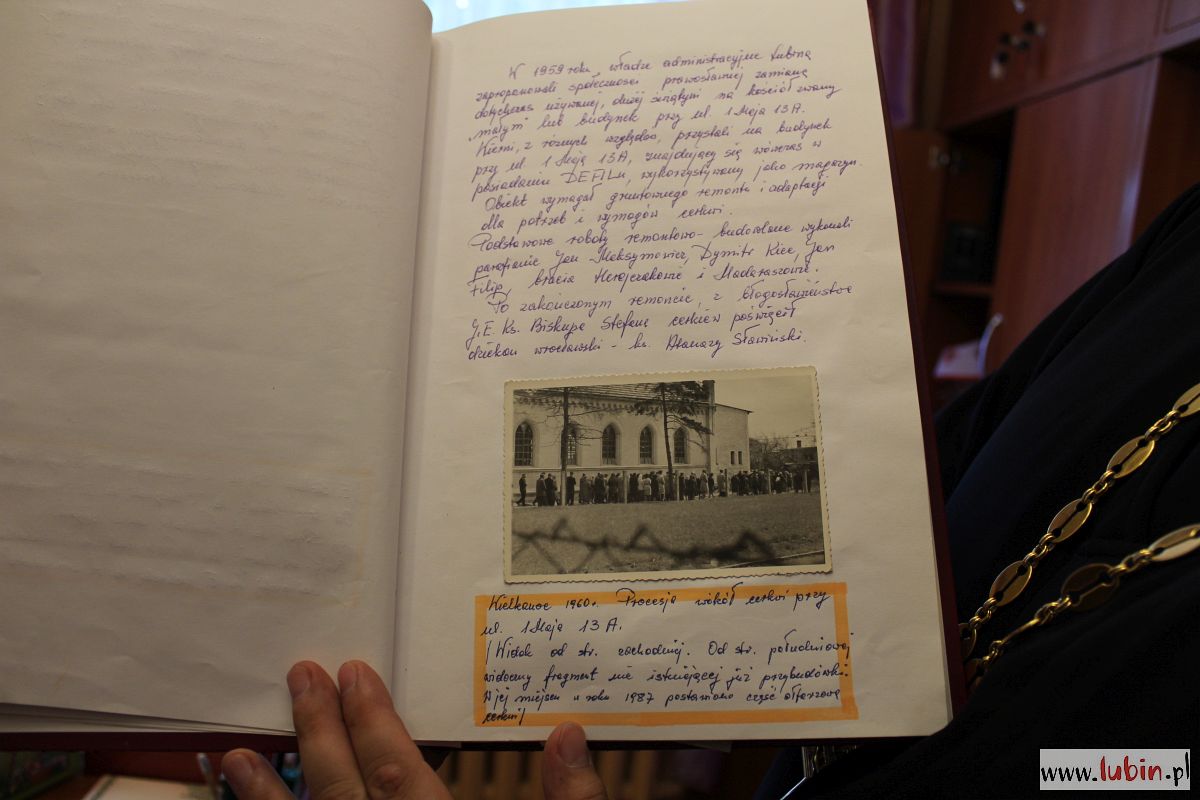 W 1959 roku, władze administracyjne Lubina
zaproponowali społeczności prawosławnej zamianę
dotychczas używanej, dużej świątyni na kościół zwany
"małym" lub budynek przy ul. 1 Maja 13 A.
Wierni, z różnych względów, przystali na budynek
przy ul. 1 Maja 13A, znajdujący się wówczas w
posiadaniu DEFILu, wykorzystywany jako magazyn.
Obiekt wymagał gruntownego remontu i adaptacji
dla potrzeb i wymogów cerkwi.
Podstawowe roboty remontowo-budowlane wykonali
parafianie Jan Maksymowicz, Dymitr Kiec, Jan
Filip, bracia i Madaraszowie.
Po zakończonym remoncie, z błogosławieństwa
J.E. Ks. Biskupa Stefana cerkiew poświęcił
dziekan wrocławski - ks. Atanazy Sławiński.
Wielkanoc 1960 r. Procesja wokół cerkwi przy
ul. 1 Maja 13 A.
/Widok od str. zachodniej. Od str. południowej
widoczny fragment nie istniejącej już przybudówki.
W jej miejscu w roku 1987 postawiono część ołtarzową
cerkwi/
www.lubin.pl